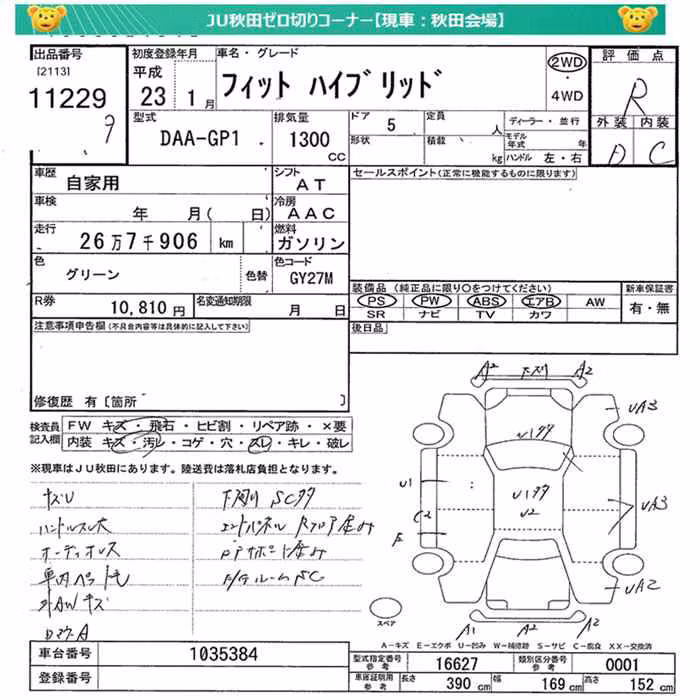 JU秋田ゼロ切りコーナー【現車：秋田会場】
出品番号
[2113]
11229
初度登録年月
平成
23 1月
車名・グレード
フィット ハイブリッド
2WD
・
4WD
評価点
R
外装 内装
D C
型式
DAA-GP1
排気量
1300
CC
ドア 5
形状
定員 人
積載 kg
ディーラー・並行
モデル年式 年
ハンドル 左・右
車歴
自家用
シフト
AT
セールスポイント(正常に機能するものに限ります)
車検
年 月( 日)
冷房
AAC
走行
26万7千906 km
燃料
ガソリン
色
グリーン
色替
色コード
GY27M
装備品 (純正品に限り○をつけてください)
新車保証書
PS PW ABS エアB AW
SR ナビ TV カワ
有・無
R券
10,810円
名変通知期限
月 日
後日品
注意事項申告欄(不具合内容等は具体的に記入して下さい)
修復歴 有[箇所 ]
検査員
記入欄
FW キズ・飛石・ヒビ割・リペア跡・×要
内装 キズ・汚レ・コゲ・穴・スレ・キレ・破レ
※現車はJU秋田にあります。陸送費は落札店負担となります。
ハンドルスレ大
オーディオレス
外AWキズ
A2 下廻り A2
UA3
U1
U2
C2
UA3
UA2
A1 A2 A2
スペア
A－キズ E－エクボ U－凹み W－補修跡 S－サビ C－腐食 XX－交換済
車台番号
1035384
登録番号
型式指定番号
参考
16627
類別区分番号
参考
0001
車庫証明用
参考
長さ 390 cm
幅 169 cm
高さ 152 cm